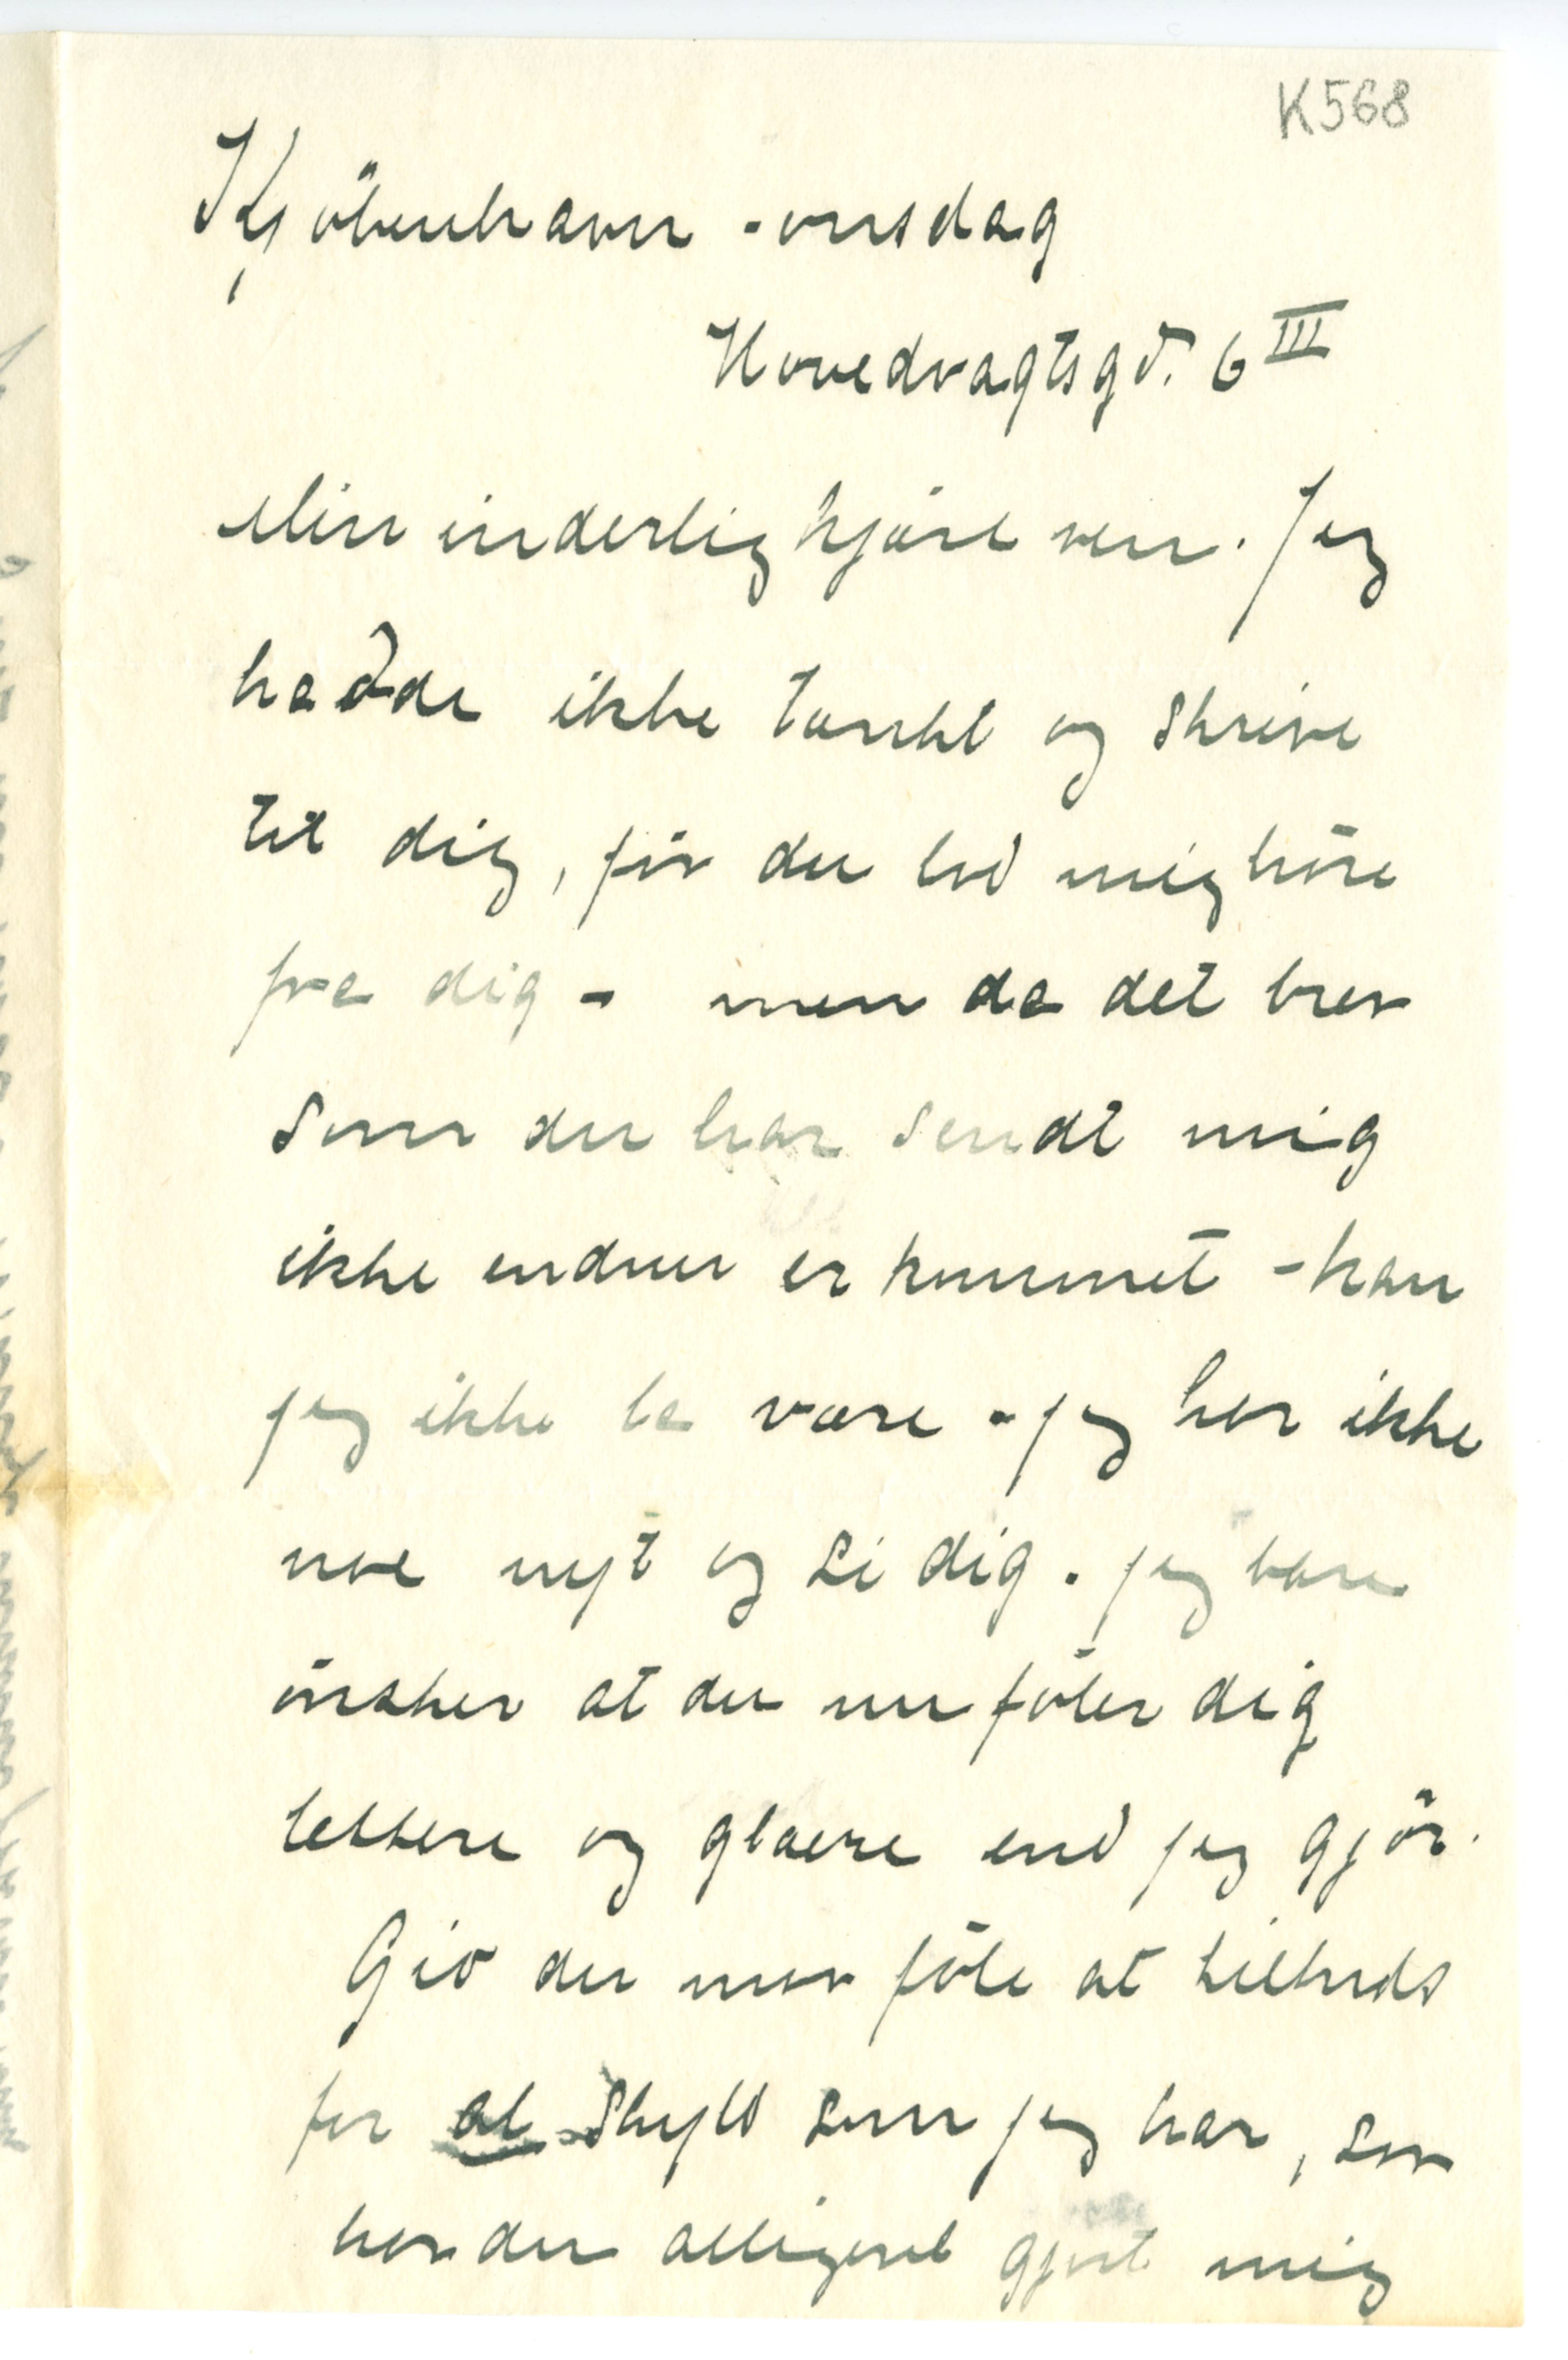 K568
Kjöbenhavn - onsdag
Hovedvagtsgd. 6 III
Min inderlig kjære ven. Jeg
hadde ikke tænkt og skrive
til dig, för du lod mig höre
fra dig - men da det brev
som du har sendt mig
ikke endnu er kommet - kan
jeg ikke la være - jeg har ikke
noe nyt og si dig. jeg bare
önsker at du nu föler dig
lettere og glaere end jeg gjör.
Gid du mor föle at tiltrods
for al skyld som jeg har, så
har du alligevel gjort mig